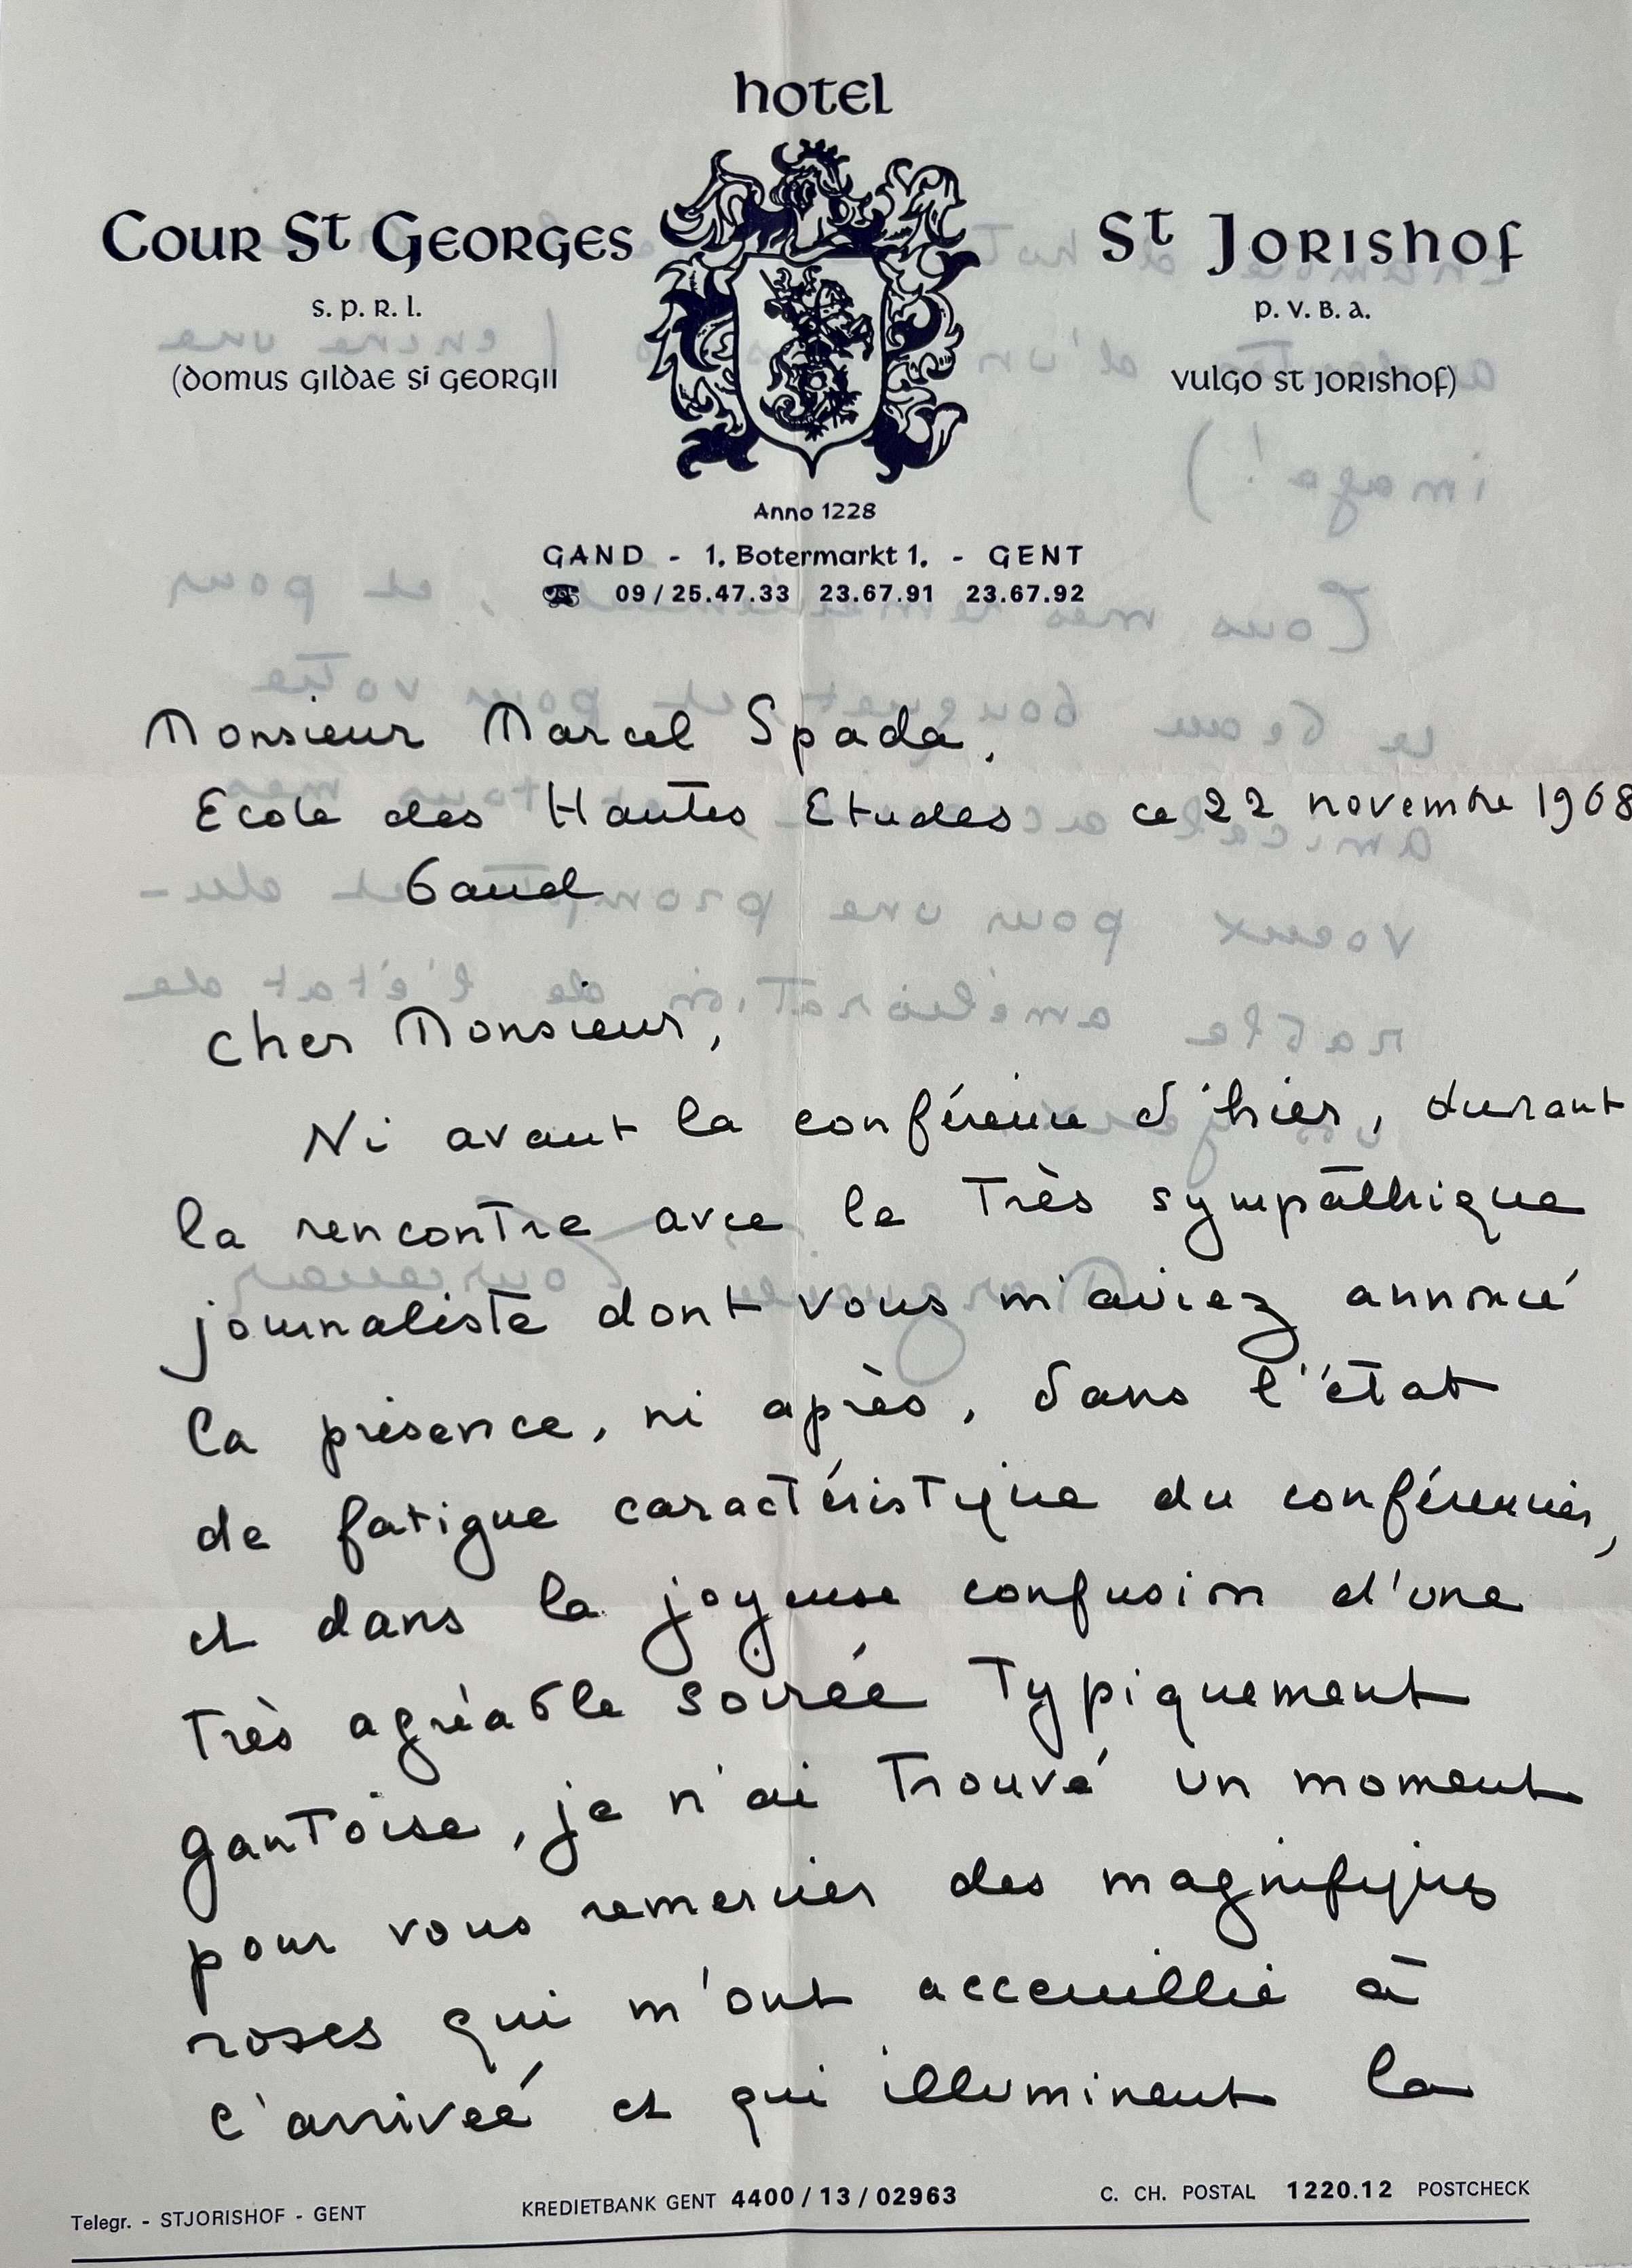 hotel
Cour St Georges
s.p.r.l.
(domus gildae si georgii
St Jorishof
p.v.b.a.
vulgo st jorishof)
Anno 1228
GAND - 1, Botermarkt 1, - GENT
☎ 09/25.47.33 23.67.91 23.67.92
Monsieur Marcel Spada,
Ecole des Hautes Etudes ce 22 novembre 1968
Gand
Cher Monsieur,
Ni avant la conférence d'hier, durant
la rencontre avec le très sympathique
journaliste dont vous m'aviez annoncé
la présence, ni après, dans l'état
de fatigue caractéristique du conférencier,
et dans la joyeuse confusion d'une
très agréable soirée typiquement
gantoise, je n'ai trouvé un moment
pour vous remercier des magnifiques
roses qui m'ont accueillie à
l'arrivée et qui illuminent la
Telegr. - STJORISHOF - GENT KREDIETBANK GENT 4400/13/02963 C. CH. POSTAL 1220.12 POSTCHECK